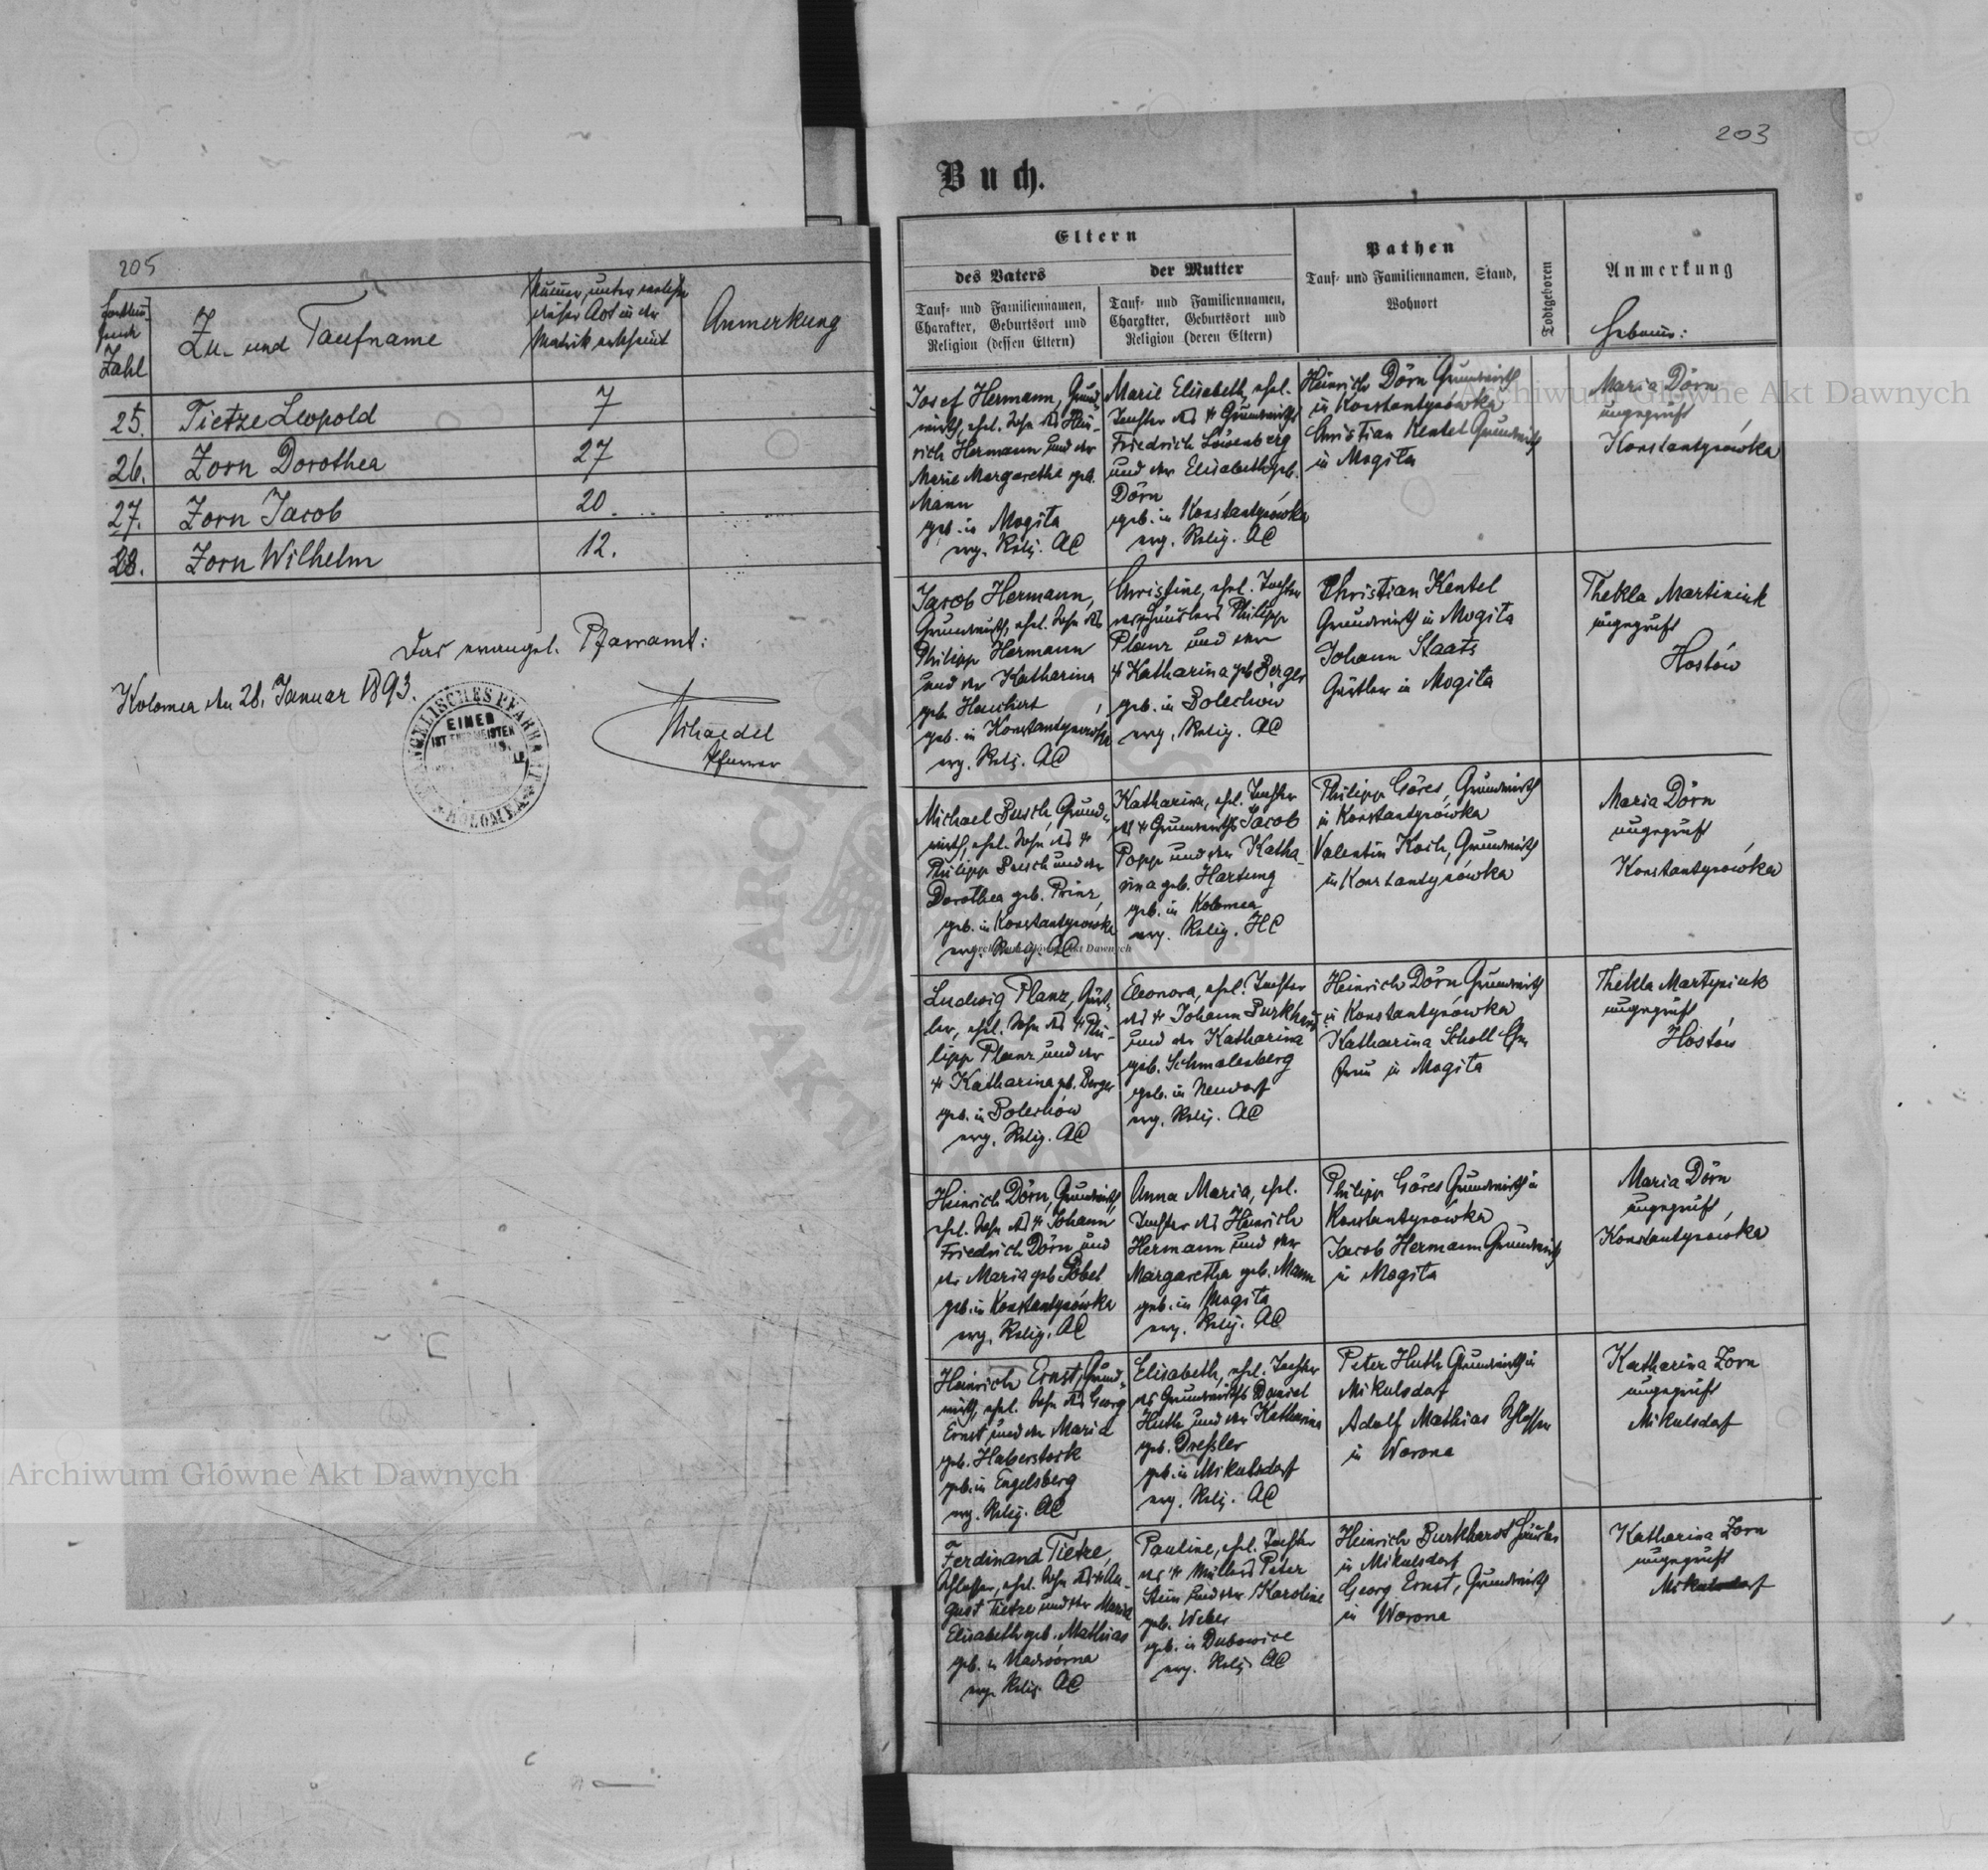 205
Fortlau-
fende
Zahl
Zu- und Taufname
Nummer, unter welcher
dieser Act in der
Matrik erscheint
Anmerkung
25. Tietze Leopold 7
26. Zorn Dorothea 27
27. Zorn Jacob 20.
28. Zorn Wilhelm 12.
Das evangel. Pfarramt:
Kolomea den 28. Januar 1893.
Pfarrer
203
Buch.
Eltern
des Vaters
Tauf- und Familiennamen,
Charakter, Geburtsort und
Religion (dessen Eltern)
der Mutter
Tauf- und Familiennamen,
Charakter, Geburtsort und
Religion (deren Eltern)
Pathen
Tauf- und Familiennamen, Stand,
Wohnort
Todtgeboren
Anmerkung
Hebamme:
Josef Hermann, Grund-
wirth, ehel. Sohn des Hein-
rich Hermann und der
Marie Margaretha geb.
Mann
geb. in Mogiła
evg. Relig. AC
Marie Elisabeth, ehel.
Tochter des † Grundwirths
Friedrich Loisenberg
und der Elisabeth geb.
Dörn
geb. in Konstantynówka
evg. Relig. AC
Heinrich Dörn Grundwirth
in Konstantynówka
Christian Kentel Grundwirth
in Mogiła
Maria Dörn
ungeprüft
Konstantynówka
Jacob Hermann,
Grundwirth, ehel. Sohn des
Philipp Hermann
und der Katharina
geb. Hauchert
geb. in Konstantynówka
evg. Relig. AC
Christine, ehel. Tochter
des Häuslers Philipp
Planz und der
† Katharina geb. Berger
geb. in Bolechów
evg. Relig. AC
Christian Kentel
Grundwirth in Mogiła
Johann Staats
Gärtler in Mogiła
Thekla Martiniuk
ungeprüft
Hostów
Michael Busch, Grund-
wirth, ehel. Sohn des †
Philipp Busch und der
Dorothea geb. Prinz,
geb. in Konstantynówka
evg. Relig. AC
Katharina, ehel. Tochter
des † Grundwirths Jacob
Popp und der Katha-
rina geb. Hartung
geb. in Kolomea
evg. Relig. HC
Philipp Göres, Grundwirth
in Konstantynówka
Valentin Koch, Grundwirth
in Konstantynówka
Maria Dörn
ungeprüft
Konstantynówka
Ludwig Planz, Gärt-
ler, ehel. Sohn des † Phi-
lipp Planz und der
† Katharina geb. Berger
geb. in Bolechów
evg. Relig. AC
Eleonora, ehel. Tochter
des † Johann Burkhard
und der Katharina
geb. Schmalenberg
geb. in Neudorf
evg. Relig. AC
Heinrich Dörn Grundwirth
in Konstantynówka
Katharina Scholl
in Mogiła
Thekla Martyniuk
ungeprüft
Hostów
Heinrich Dörn, Grundwirth,
ehel. Sohn des † Johann
Friedrich Dörn und
der Maria geb. Göbel
geb. in Konstantynówka
evg. Relig. AC
Anna Maria, ehel.
Tochter des Heinrich
Hermann und der
Margaretha geb. Mann
geb. in Mogiła
evg. Relig. AC
Philipp Göres Grundwirth in
Konstantynówka
Jacob Hermann Grundwirth
in Mogiła
Maria Dörn
ungeprüft
Konstantynówka
Heinrich Ernst, Grund-
wirth, ehel. Sohn des Georg
Ernst und der Maria
geb. Haberstock
geb. in Engelsberg
evg. Relig. AC
Elisabeth, ehel. Tochter
des Grundwirths Daniel
Huth und der Katharina
geb. Dreßler
geb. in Mikulsdorf
evg. Relig. AC
Peter Huth Grundwirth in
Mikulsdorf
Adolf Mathias Schlosser
in Worona
Katharina Zorn
ungeprüft
Mikulsdorf
Ferdinand Tietze,
Schlosser, ehel. Sohn des † Au-
gust Tietze und der Maria
Elisabeth geb. Mathias
geb. in Nadwórna
evg. Relig. AC
Pauline, ehel. Tochter
des † Müllers Peter
Stein und der Karoline
geb. Weber
geb. in Dubowice
evg. Relig. AC
Heinrich Burkhardt Häusler
in Mikulsdorf
Georg Ernst, Grundwirth
in Worona
Katharina Zorn
ungeprüft
Mikulsdorf
Archiwum Główne Akt Dawnych
Archiwum Główne Akt Dawnych